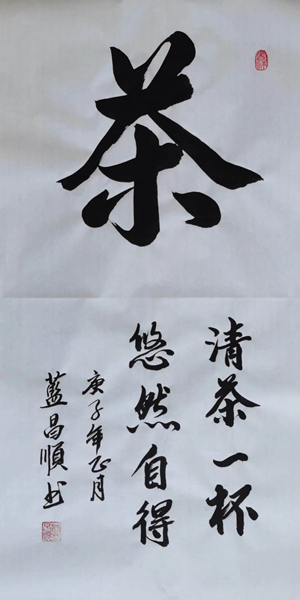 茶
清茶一杯
悠然自得
庚子年正月
藍昌順书